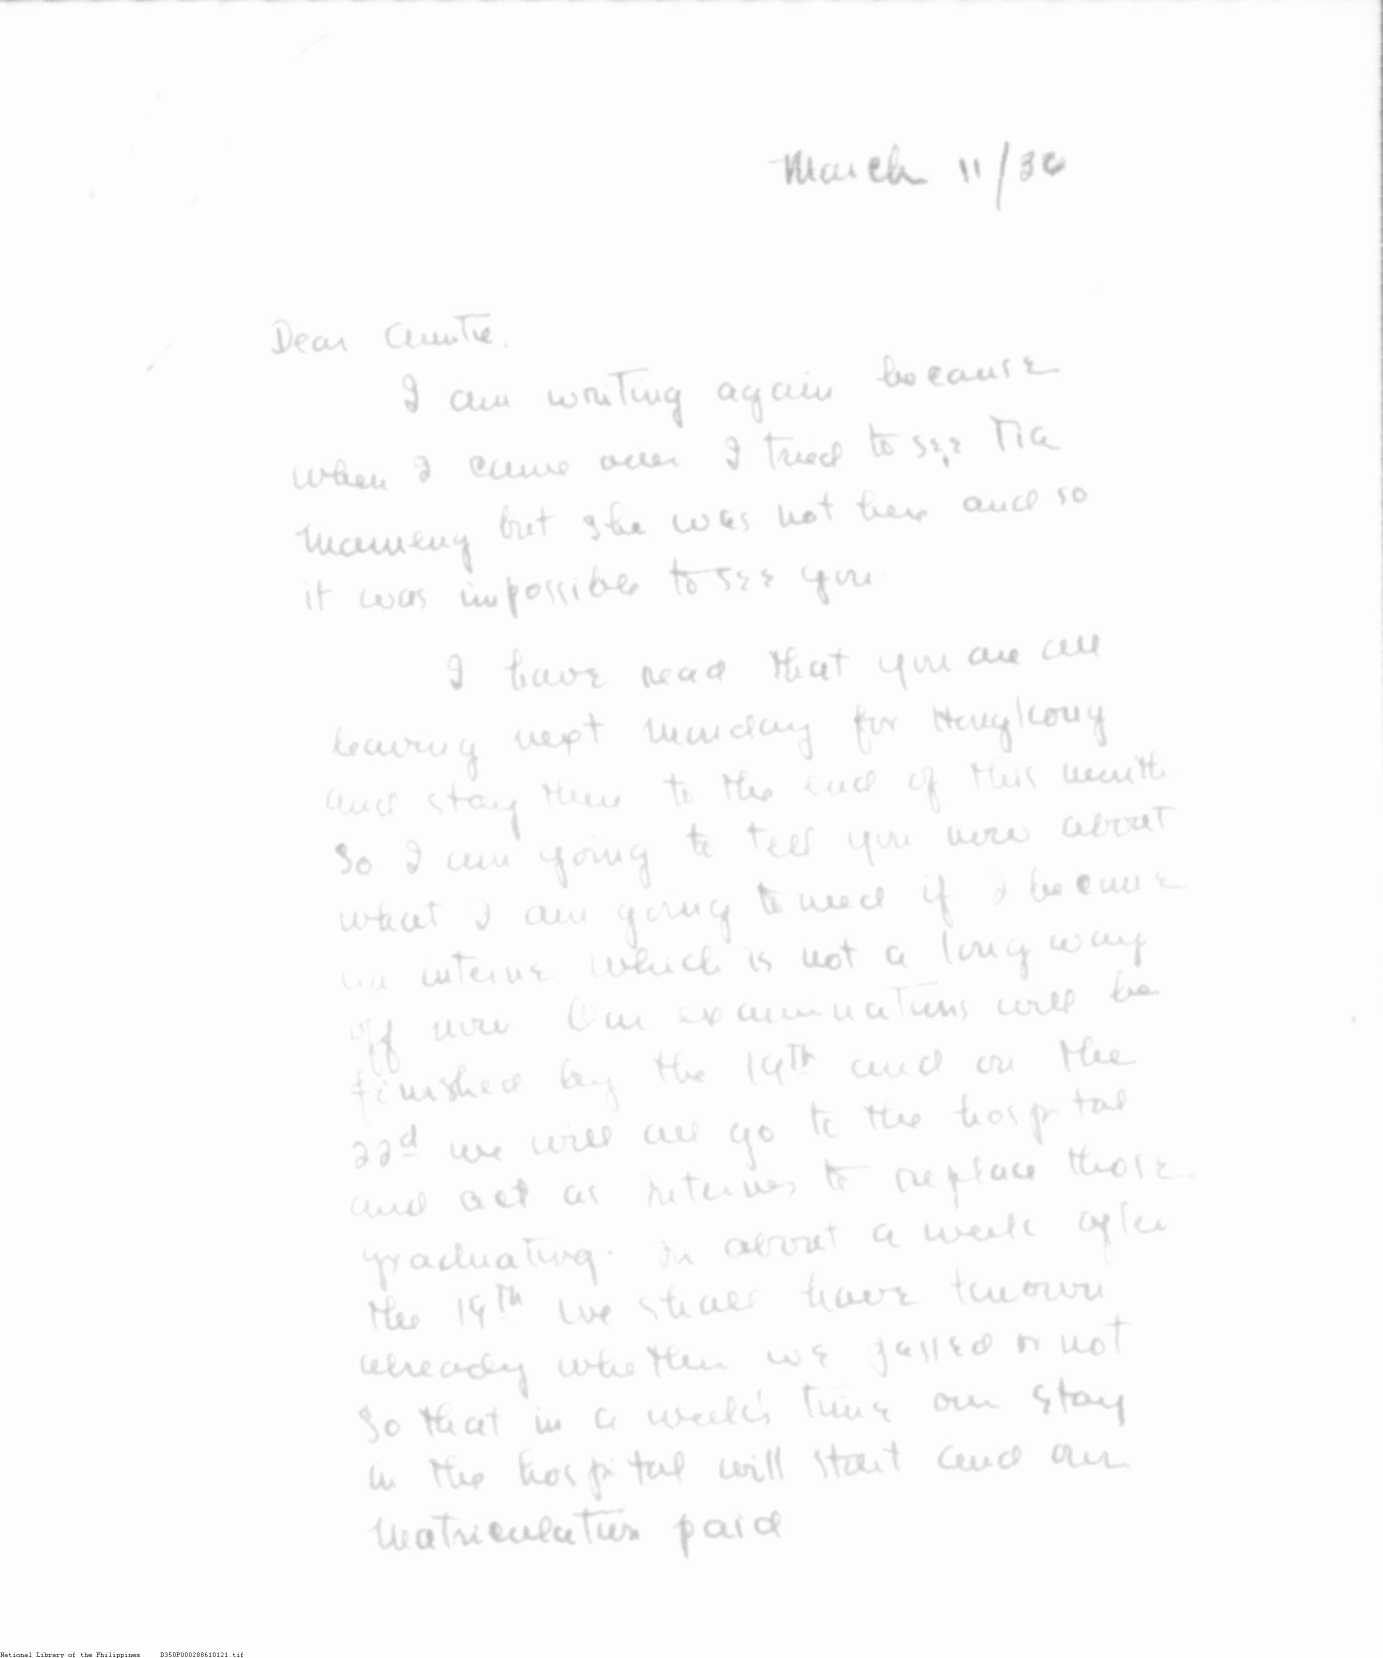 March 11/36
Dear Auntie.
I am writing again because
when I came over I tried to see Tia
Mameng but she was not here and so
it was impossible to see you
I have read that you are all
leaving next Monday for Hongkong
and stay there to the end of this month
So I am going to tell you now about
what I am going to need if I become
an interne which is not a long way
off now Our examinations will be
finished by the 19th and on the
22d we will all go to the hospital
and act as internes to replace those
graduating. In about a week after
the 19th we shall have known
already whether we passed or not
So that in a week's time our stay
in the hospital will start and our
matriculation paid
National Library of the Philippines B350P000288610121.tif